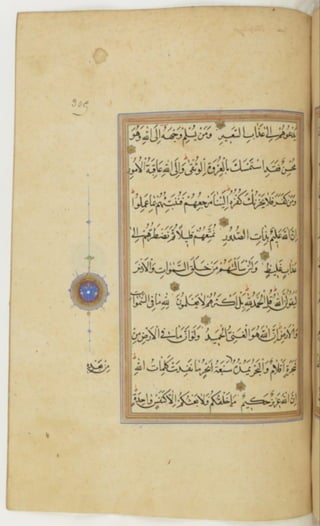 يَدْعُوهُمْ إِلَى عَذَابِ السَّعِيرِ وَمَنْ يُسْلِمْ وَجْهَهُ إِلَى اللَّهِ وَهُوَ
مُحْسِنٌ فَقَدِ اسْتَمْسَكَ بِالْعُرْوَةِ الْوُثْقَى وَإِلَى اللَّهِ عَاقِبَةُ الْأُمُورِ
وَمَنْ كَفَرَ فَلَا يَحْزُنْكَ كُفْرُهُ إِلَيْنَا مَرْجِعُهُمْ فَنُنَبِّئُهُمْ بِمَا عَمِلُوا
إِنَّ اللَّهَ عَلِيمٌ بِذَاتِ الصُّدُورِ نُمَتِّعُهُمْ قَلِيلًا ثُمَّ نَضْطَرُّهُمْ إِلَى
عَذَابٍ غَلِيظٍ وَلَئِنْ سَأَلْتَهُمْ مَنْ خَلَقَ السَّمَوَاتِ وَالْأَرْضَ
لَيَقُولُنَّ اللَّهُ قُلِ الْحَمْدُ لِلَّهِ بَلْ أَكْثَرُهُمْ لَا يَعْلَمُونَ لِلَّهِ مَا فِي السَّمَوَاتِ
وَالْأَرْضِ إِنَّ اللَّهَ هُوَ الْغَنِيُّ الْحَمِيدُ وَلَوْ أَنَّ مَا فِي الْأَرْضِ مِنْ
شَجَرَةٍ أَقْلَامٌ وَالْبَحْرُ يَمُدُّهُ سَبْعَةُ أَبْحُرٍ مَا نَفِدَتْ كَلِمَاتُ اللَّهِ
مِنْ بَعْدِهِ
إِنَّ اللَّهَ عَزِيزٌ حَكِيمٌ مَا خَلْقُكُمْ وَلَا بَعْثُكُمْ إِلَّا كَنَفْسٍ وَاحِدَةٍ